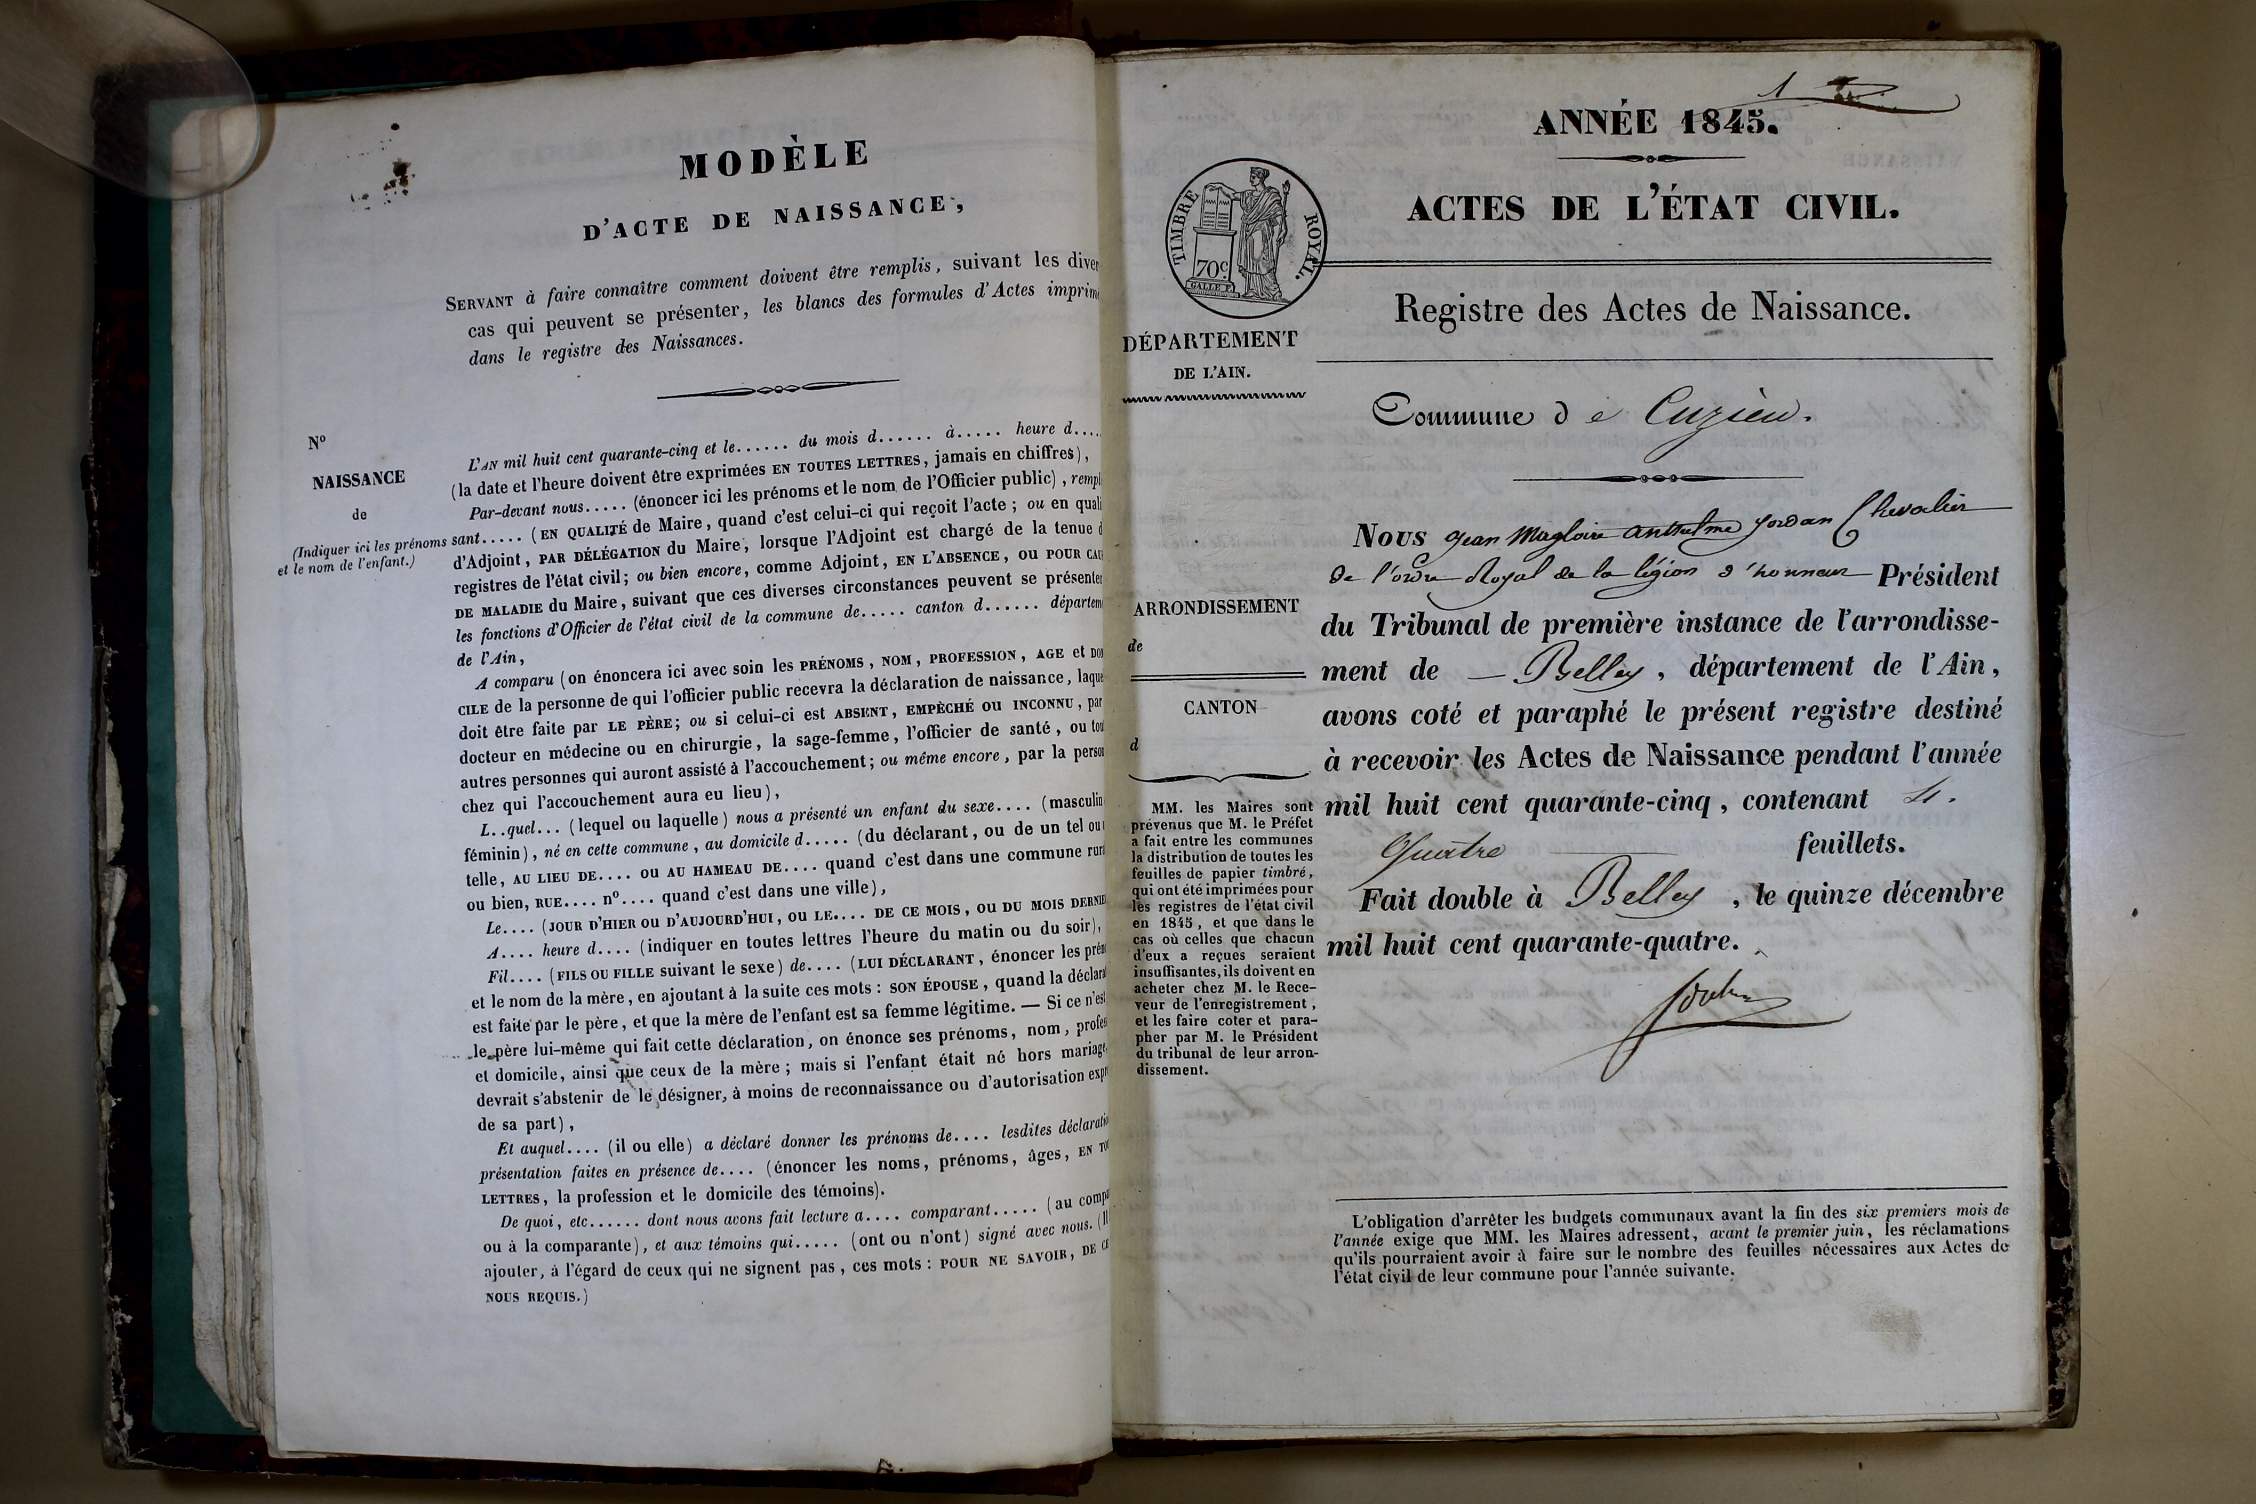 MODÈLE
D'ACTE DE NAISSANCE,
SERVANT à faire connaître comment doivent être remplis, suivant les diver
cas qui peuvent se présenter, les blancs des formules d'Actes imprim
dans le registre des Naissances.
N°
NAISSANCE
de
(Indiquer ici les prénoms
et le nom de l'enfant.)
L'AN mil huit cent quarante-cinq et le...... du mois d...... à..... heure d....
(la date et l'heure doivent être exprimées EN TOUTES LETTRES, jamais en chiffres),
Par-devant nous..... (énoncer ici les prénoms et le nom de l'Officier public), rempl
sant..... (EN QUALITÉ de Maire, quand c'est celui-ci qui reçoit l'acte; ou en quali
d'Adjoint, PAR DÉLÉGATION du Maire, lorsque l'Adjoint est chargé de la tenue d
registres de l'état civil; ou bien encore, comme Adjoint, EN L'ABSENCE, OU POUR CAU
DE MALADIE du Maire, suivant que ces diverses circonstances peuvent se présenter
les fonctions d'Officier de l'état civil de la commune de..... canton d...... départem
de l'Ain,
A comparu (on énoncera ici avec soin les PRÉNOMS, NOM, PROFESSION, AGE et DOM
CILE de la personne de qui l'officier public recevra la déclaration de naissance, laque
doit être faite par LE PÈRE; ou si celui-ci est ABSENT, EMPÊCHÉ OU INCONNU, par
docteur en médecine ou en chirurgie, la sage-femme, l'officier de santé, ou tou
autres personnes qui auront assisté à l'accouchement; ou même encore, par la person
chez qui l'accouchement aura eu lieu),
L..quel... (lequel ou laquelle) nous a présenté un enfant du sexe.... (masculin
féminin), né en cette commune, au domicile d..... (du déclarant, ou de un tel ou
telle, AU LIEU DE.... OU AU HAMEAU DE.... quand c'est dans une commune rur
ou bien, RUE.... n°.... quand c'est dans une ville),
Le.... (JOUR D'HIER OU D'AUJOURD'HUI, OU LE.... DE CE MOIS, OU DU MOIS DERNIE
A.... heure d.... (indiquer en toutes lettres l'heure du matin ou du soir),
Fil.... (FILS OU FILLE suivant le sexe) de.... (LUI DÉCLARANT, énoncer les prén
et le nom de la mère, en ajoutant à la suite ces mots : SON ÉPOUSE, quand la déclara
est faite par le père, et que la mère de l'enfant est sa femme légitime. — Si ce n'est
le père lui-même qui fait cette déclaration, on énonce ses prénoms, nom, profes
et domicile, ainsi que ceux de la mère; mais si l'enfant était né hors mariage
devrait s'abstenir de le désigner, à moins de reconnaissance ou d'autorisation expr
de sa part),
Et auquel.... (il ou elle) a déclaré donner les prénoms de.... lesdites déclaratio
présentation faites en présence de.... (énoncer les noms, prénoms, âges, EN TOU
LETTRES, la profession et le domicile des témoins).
De quoi, etc...... dont nous avons fait lecture a.... comparant..... (au compa
ou à la comparante), et aux témoins qui..... (ont ou n'ont) signé avec nous. (Il
ajouter, à l'égard de ceux qui ne signent pas, ces mots : POUR NE SAVOIR, DE CE
NOUS REQUIS.)
1
ANNÉE 1845.
ACTES DE L'ÉTAT CIVIL.
TIMBRE ROYAL.
70c
GALLE F.
Registre des Actes de Naissance.
DÉPARTEMENT
DE L'AIN.
Commune de Cuzieu.
Nous Jean Magloire anthelme Jordan Chevalier
de l'ordre Royal de la légion d'honneur Président
du Tribunal de première instance de l'arrondisse-
ment de — Belley, département de l'Ain,
avons coté et paraphé le présent registre destiné
à recevoir les Actes de Naissance pendant l'année
mil huit cent quarante-cinq, contenant 4.
Quatre feuillets.
Fait double à Belley, le quinze décembre
mil huit cent quarante-quatre.
Jordan
ARRONDISSEMENT
de
CANTON
d
MM. les Maires sont
prévenus que M. le Préfet
a fait entre les communes
la distribution de toutes les
feuilles de papier timbré,
qui ont été imprimées pour
les registres de l'état civil
en 1845, et que dans le
cas où celles que chacun
d'eux a reçues seraient
insuffisantes, ils doivent en
acheter chez M. le Rece-
veur de l'enregistrement,
et les faire coter et para-
pher par M. le Président
du tribunal de leur arron-
dissement.
L'obligation d'arrêter les budgets communaux avant la fin des six premiers mois de
l'année exige que MM. les Maires adressent, avant le premier juin, les réclamations
qu'ils pourraient avoir à faire sur le nombre des feuilles nécessaires aux Actes de
l'état civil de leur commune pour l'année suivante.